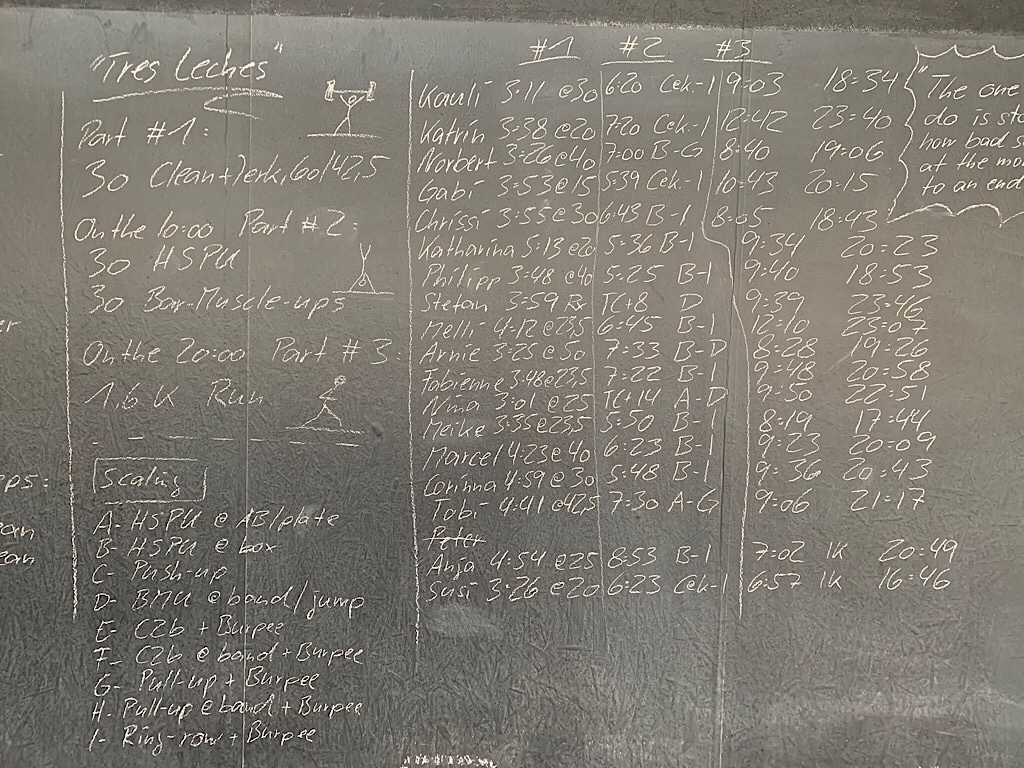 "Tres Leches"
Part #1:
30 Clean+Jerk, 60/42,5
On the 10:00 Part #2:
30 HSPU
30 Bar-Muscle-ups
On the 20:00 Part #3:
1,6 K Run
Scaling
A- HSPU @ AB/plate
B- HSPU @ box
C- Push-up
D- BMU @ band/jump
E- C2b + Burpee
F- C2b @ band + Burpee
G- Pull-up + Burpee
H. Pull-up @ band + Burpee
I- Ring-row + Burpee
#1 #2 #3
3:11 @30 6:20 9:03 18:34
Katrin 3:38 @20 7:20 12:42 23:40
Norbert 3:26@40 7:00 B-G 8:40 19:06
Gabi 3:53@15 5:39 10:43 20:15
Chrissi 3:55@30 6:43 B-I 8:05 18:43
Katharina 5:13@20 5:36 B-I 9:34 20:23
Philipp 3:48 @40 5:25 B-I 9:40 18:53
Stefan 3:59 Rx TC+8 D 9:39 23:46
Melli 4:12@23,5 6:45 B-I 12:10 23:07
Arnie 3:25@50 7:33 B-D 8:28 19:26
Fabienne 3:48@23,5 7:22 B-I 9:48 20:58
Nina 3:01@25 TC+14 A-D 9:50 22:51
Meike 3:35@23,5 5:50 B-I 8:19 17:44
Marcel 4:23@40 6:23 B-I 9:23 20:09
Corinna 4:59@30 5:48 B-I 9:36 20:43
Tobi 4:41@42,5 7:30 A-G 9:06 21:17
Peter
Anja 4:54@25 8:53 B-I 7:02 1K 20:49
Susi 3:26@20 6:23 6:57 1K 16:46
"The one
do is
how bad
at the
to an end